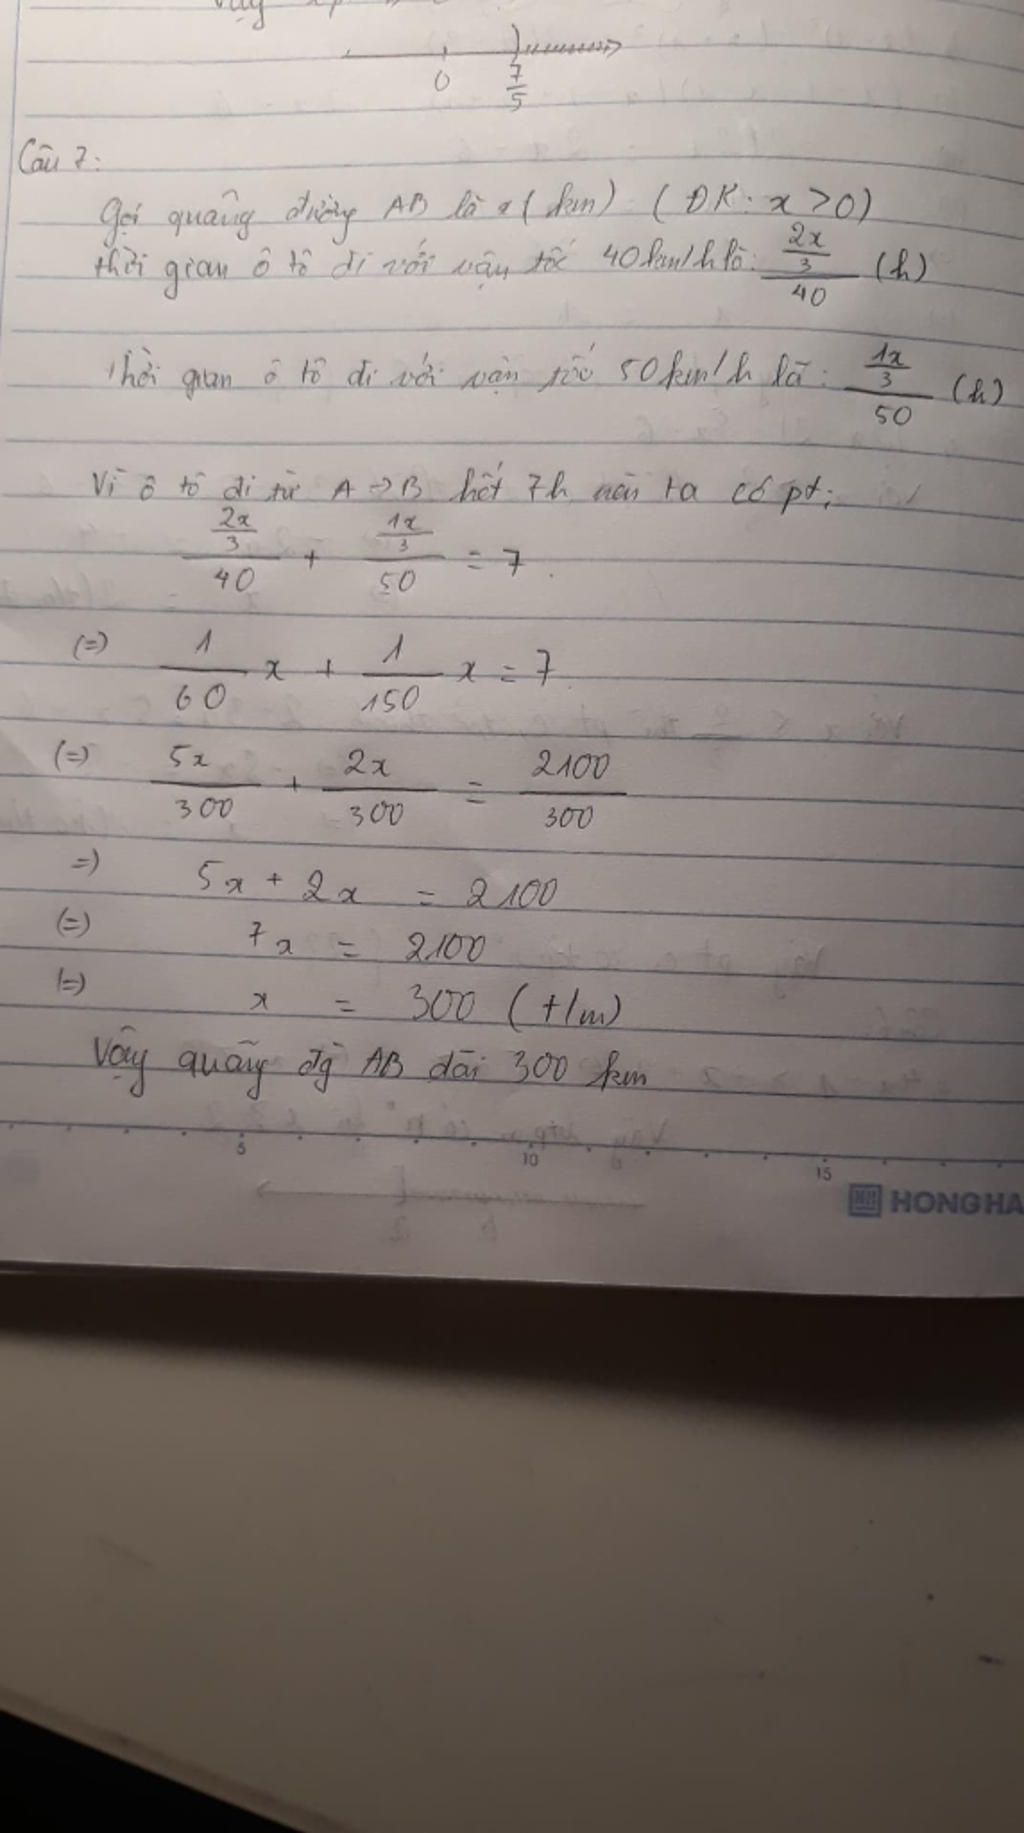 Vậy
0
7/5
Câu 7:
Gọi quãng đường AB là x (km) (ĐK: x > 0)
thời gian ô tô đi với vận tốc 40km/h là: (2x/3)/40 (h)
Thời gian ô tô đi với vận tốc 50km/h là: (1x/3)/50 (h)
Vì ô tô đi từ A → B hết 7h nên ta có pt:
(2x/3)/40 + (1x/3)/50 = 7.
(=) 1/60 x + 1/150 x = 7.
(=) 5x/300 + 2x/300 = 2100/300
=) 5x + 2x = 2100
(=) 7x = 2100
(=) x = 300 (t/m)
Vậy quãng đg AB dài 300 km
5 10 15
HONG HA